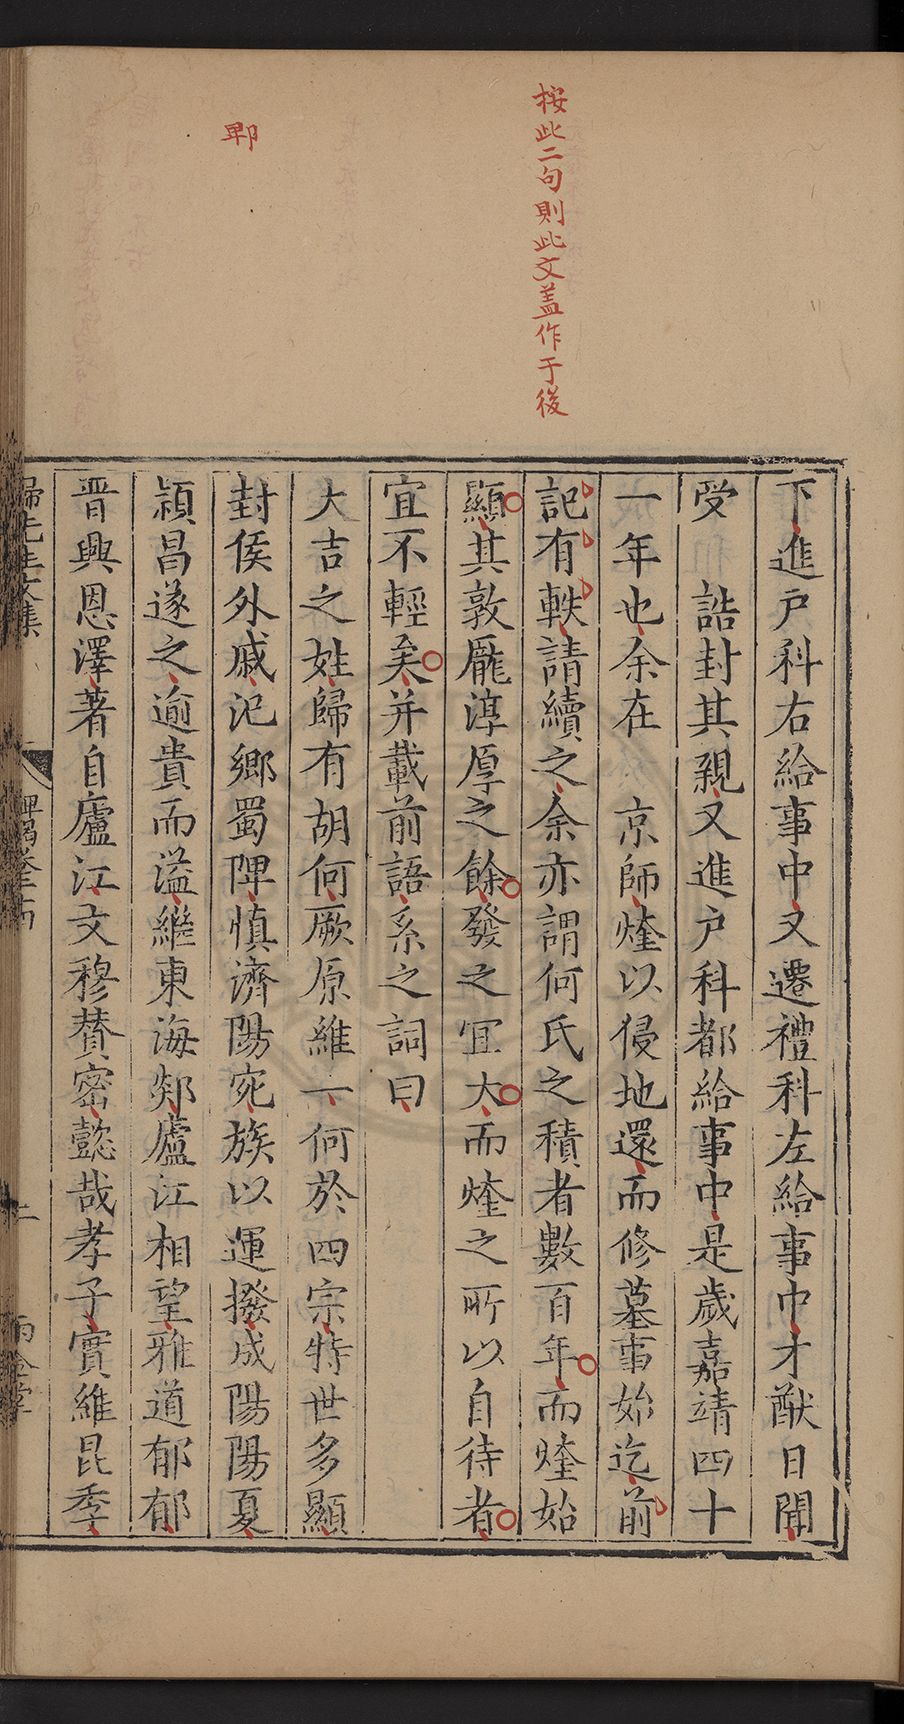 按此二句則此文蓋作于後
郫
下進戶科右給事中又遷禮科左給事中才猷日聞
受　誥封其親又進戶科都給事中是歲嘉靖四十
一年也余在　京師煃以侵地還而修墓事始迄前
記有軼請續之余亦謂何氏之積者數百年而煃始
顯其敦龐淳厚之餘發之宜大而煃之所以自待者
宜不輕矣并載前語系之詞曰
大吉之姓歸有胡何厥原維一何於四宗特世多顯
封侯外戚汜鄉蜀陴慎濟陽宛族以運撥成陽陽夏
潁昌遂之逾貴而溢繼東海郯廬江相望雅道郁郁
晋興恩澤著自廬江文穆賛密懿哉孝子實維昆季
歸先生文集
二